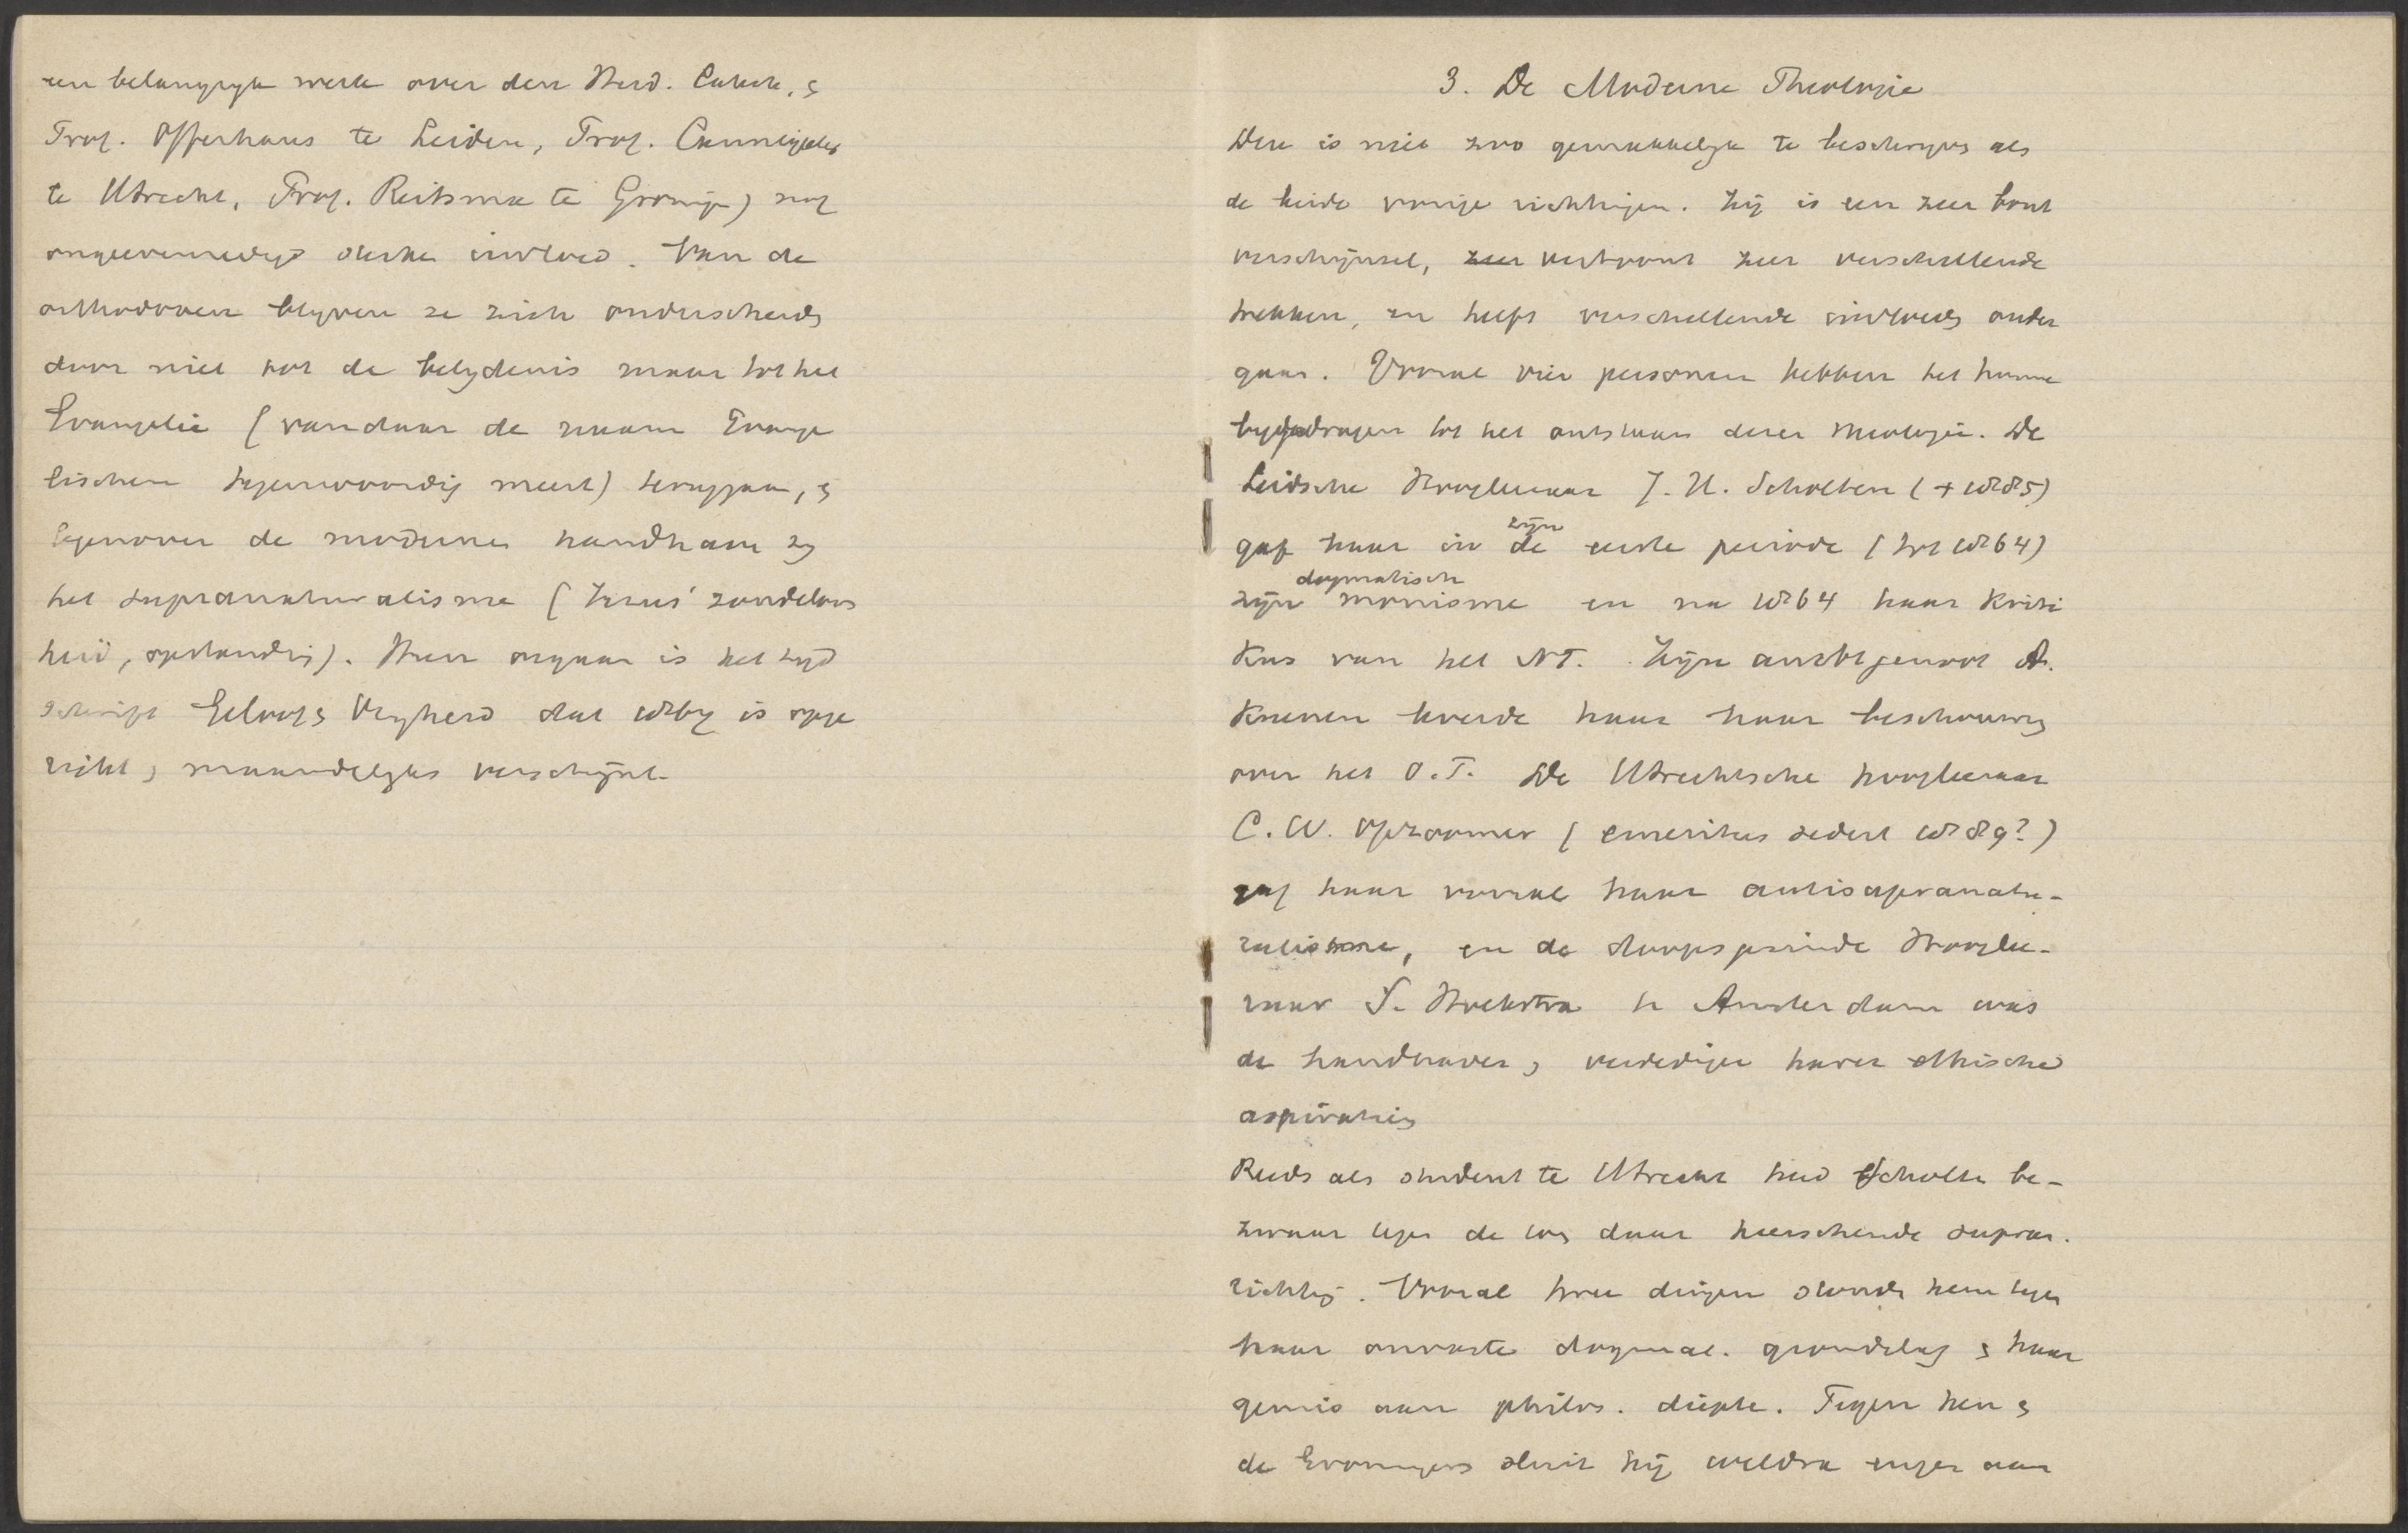 een belangrijk werk over den Heid. Catech. &
Prof. Offerhaus te Leiden, Prof. Cannegieter
te Utrecht, Prof. Reitsma te Groning) nog
onevenredig sterken invloed. Van de
orthodoxen blijven ze zich onderscheiden
door niet tot de belijdenis maar tot het
Evangelie (vandaar de naam Evange
lischen tegenwoordig meest) teruggaan, &
tegenover de modernen handhaven zij
het supranaturalisme (Jezus' zondeloos
heid, opstanding). Hun orgaan is het tijd
schrift Geloof & Vrijheid dat 1867 is opge
richt & maandelijks verschijnt.
3. De Moderne Theologie
Deze is niet zoo gemakkelijk te beschrijven als
de beide vorige richtingen. Zij is een zeer bont
verschijnsel, zeer vertoont zeer verschillende
trekken, en heeft verschillende invloeden onder
gaan. Vooral vier personen hebben het hunne
bijgedragen tot het ontstaan dezer theologie. De
Leidsche Hoogleeraar J. H. Scholten (+ 1885)
gaf haar in de zijn eerste periode (tot 1864)
zijn dogmatisch monisme en na 1864 haar Kriti
kus van het NT. Zijn ambtgenoot A.
Kuenen leverde haar haar beschouwing
over het O.T. De Utrechtsche hoogleeraar
C. W. Opzoomer (emeritus sedert 1889?)
gaf haar vooral haar antisupranatu-
ralisme, en de doopsgezinde Hooglee-
raar S. Hoekstra te Amsterdam was
de handhaver & verdediger harer ethische
aspiratien
Reeds als student te Utrecht had Scholten be-
zwaar tegen de toen daar heerschende supran.
richting. Vooral twee dingen stonden hem tegen
haar onvaste dogmat. grondslag & haar
gemis aan philos. diepte. Tegen hen &
de Groningers sluit hij weldra enger aan